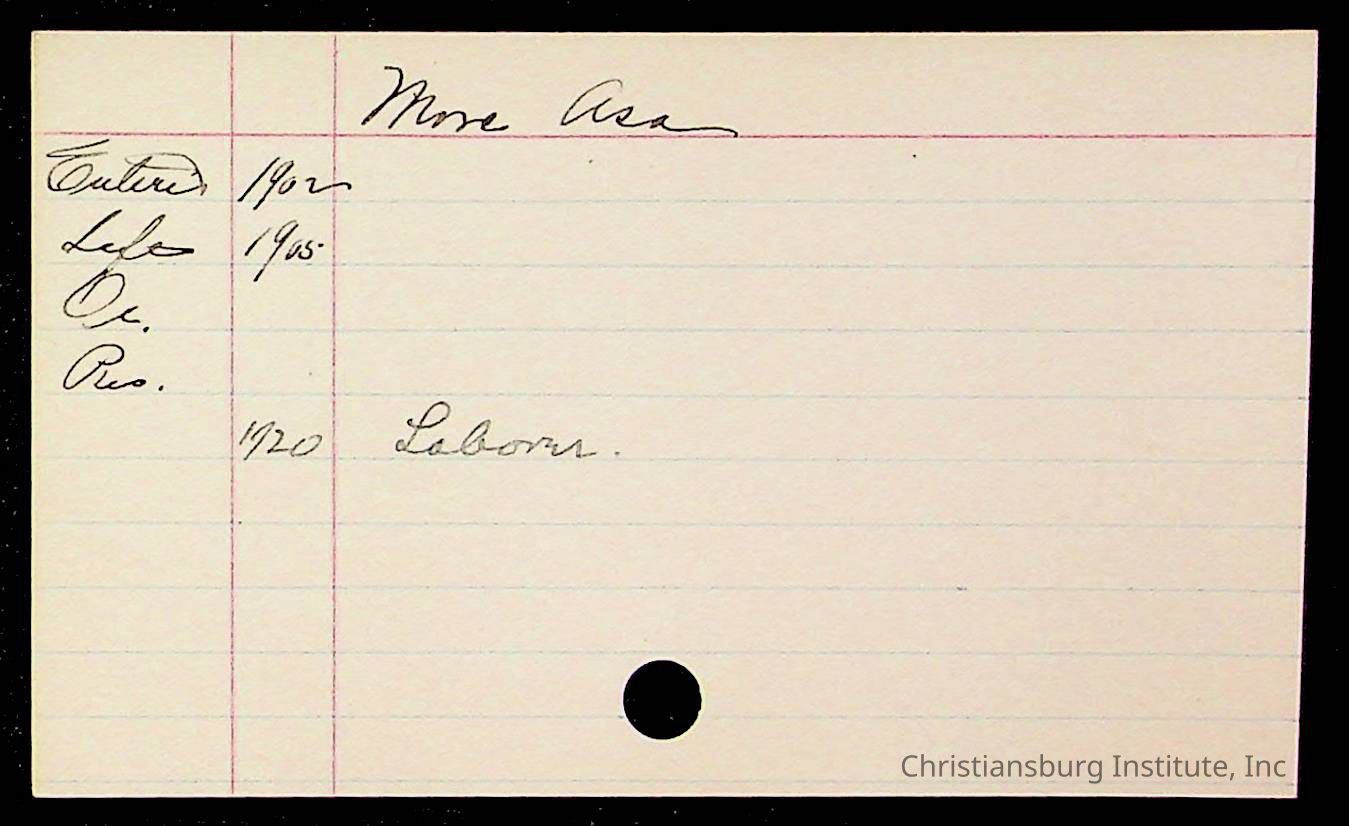 More Asa
Entered 1902
Left 1905
Oc.
Res.
1920 Laborer.
Christiansburg Institute, Inc